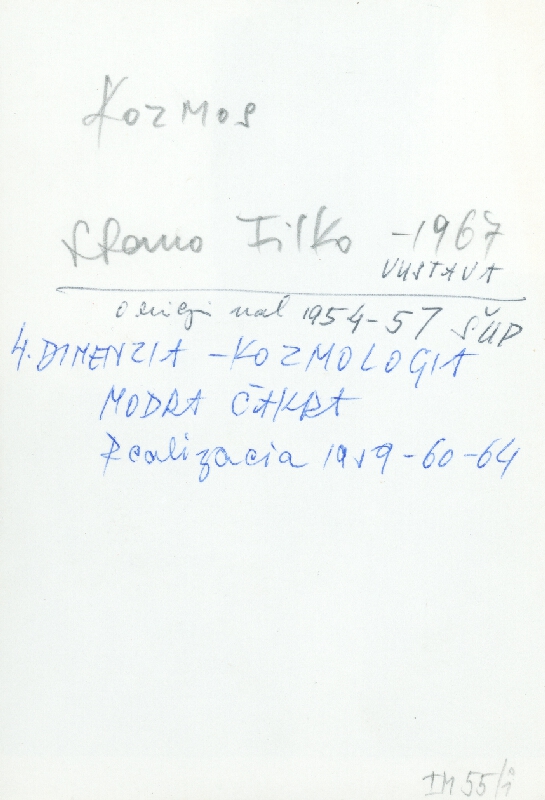 Kozmos
Stano Filko - 1967
VÝSTAVA
original 1954-57 ŠUP
4. DIMENZIA - KOZMOLOGIA
MODRA ČAKRA
Realizacia 1959-60-64
IM 55/i